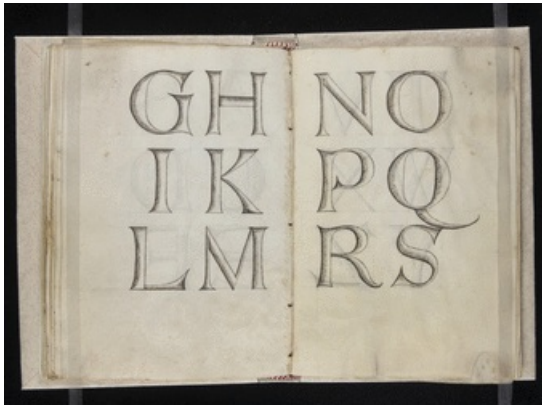 GH
IK
LM
NO
PQ
RS